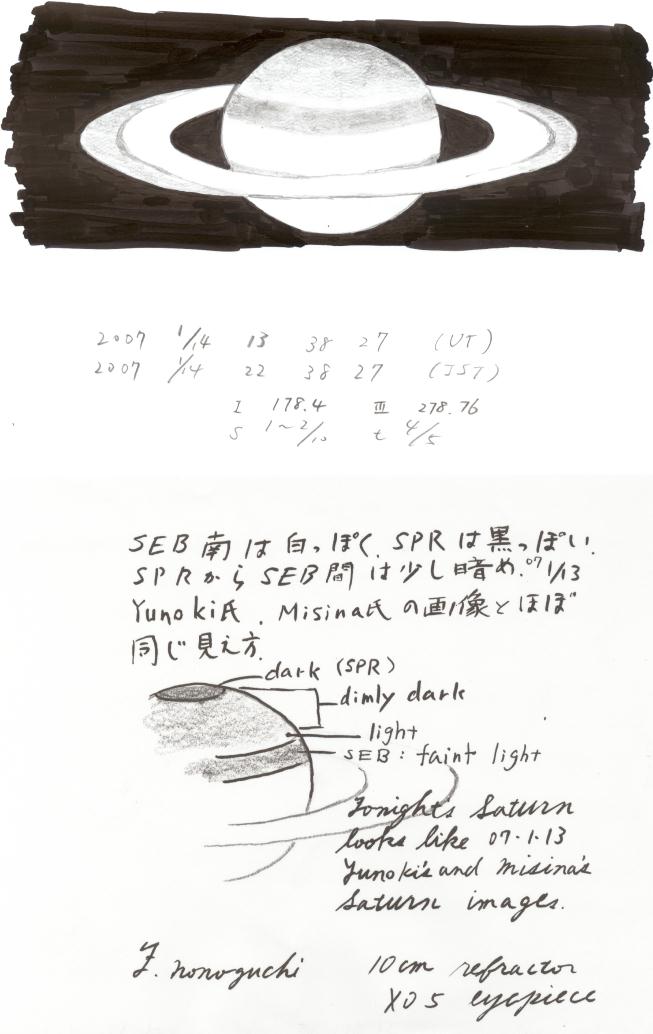 2007 1/14 13 38 27 (UT)
2007 1/14 22 38 27 (JST)
I 178.4 III 278.76
S 1~2/10 t 4/5
SEB 南は白っぽく、SPRは黒っぽい、
SPRからSEB間は少し暗め、07 1/13
Yunoki氏、Misina氏の画像とほぼ
同じ見え方、
dark (SPR)
dimly dark
light
SEB: faint light
Tonight's Saturn
looks like 07.1.13
Yunoki's and Misina's
Saturn images.
F. nonoguchi
10cm refractor
XO5 eyepiece